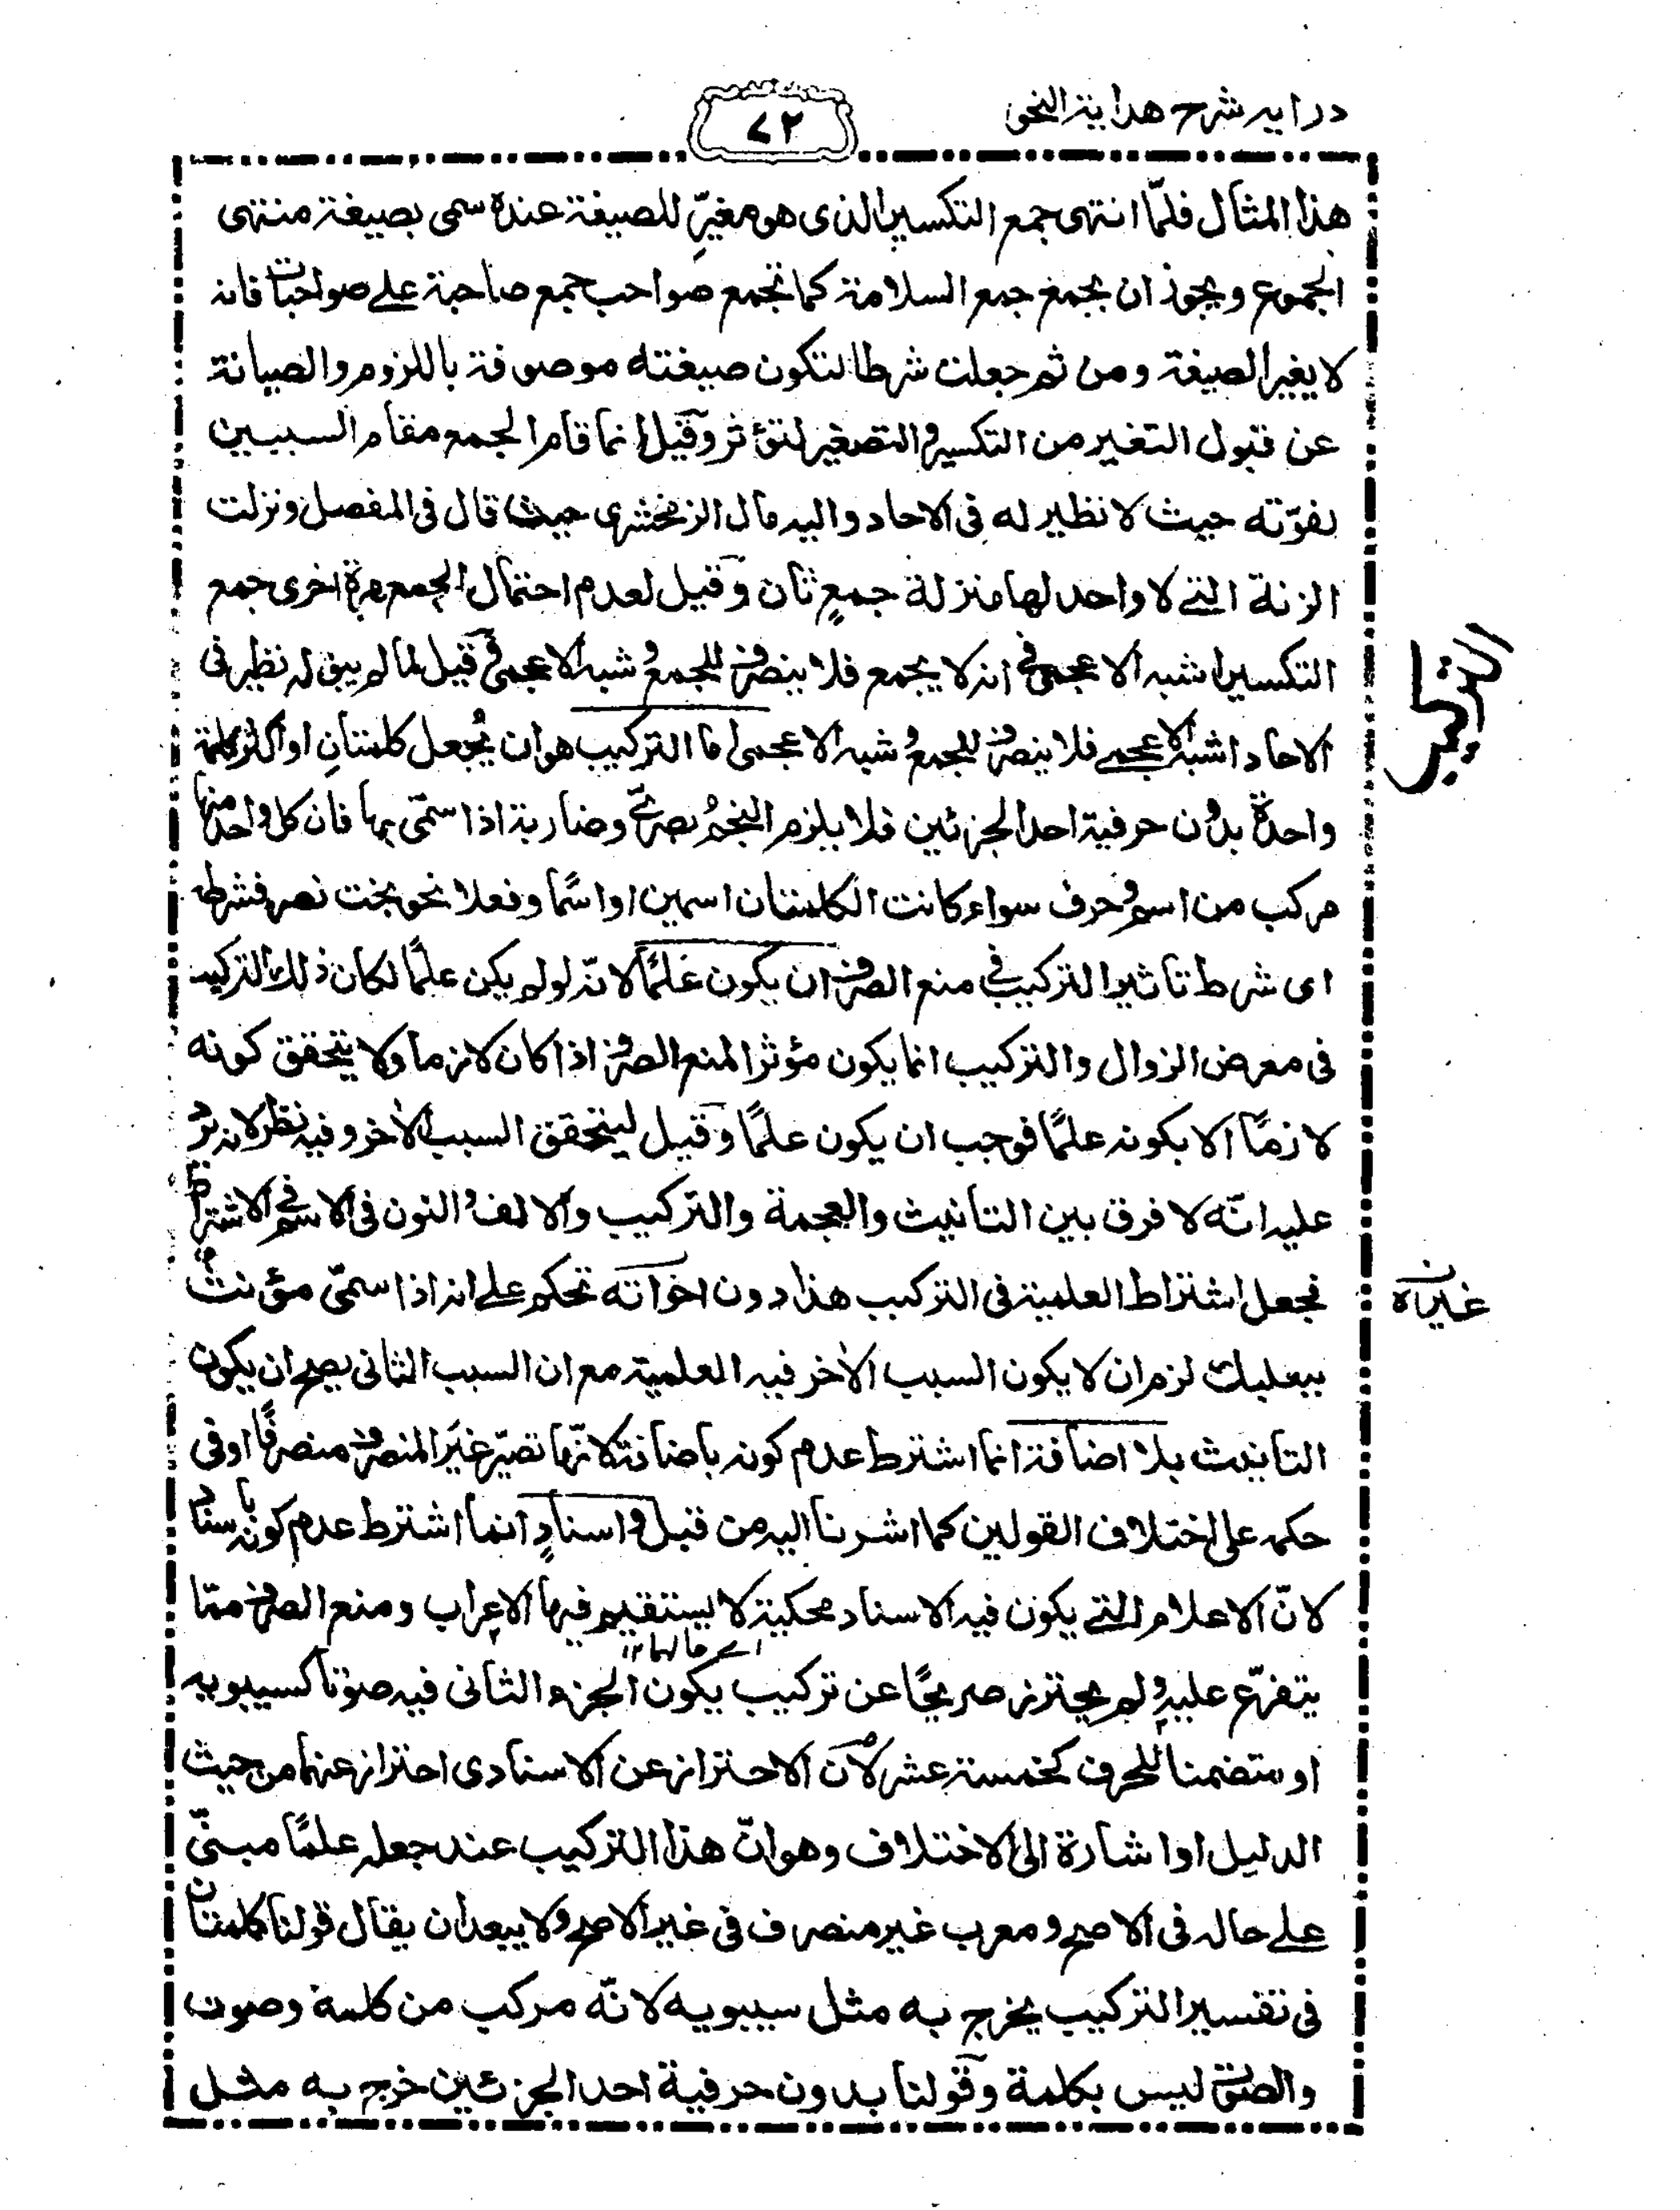 درايه شرح هداية النحو
٧٢
هذا المثال فلمّا انتهى جمع التكسير الذى هو مغيّر للصيغة عنده سمى بصيغة منتهى
الجموع ويجوز ان يجمع جمع السلامة كما تجمع صواحب جمع صاحبة على صواحبات فانه
لا يغير الصيغة ومن ثم جعلت شرطا لتكون صيغته موصوفة باللزوم والصيانة
عن قبول التغير من التكسير والتصغير لتؤثر وقيل انما قام الجمع مقام السببين
لقوّته حيث لا نظير له فى الاحاد واليه مال الزمخشرى حيث قال فى المفصل ونزلت
الزنة التى لا واحد لها منزلة جمعٍ ثان وقيل لعدم احتمال الجمع مرة اخرى جمع
التكسير اشبه الاعجمى فى انه لا يجمع فلا ينصرف للجمع وشبه الاعجمى وقيل لما لم يبق له نظير فى
الاحاد اشبه الاعجمى فلا ينصرف للجمع وشبه الاعجمى اما التركيب هو ان يُجعل كلمتانِ او اكثر كلمة
واحدة بدون حرفية احد الجزئين فلا يلزم النجمُ بصرىّ وضاربة اذا سمّى بها فان كل واحد منها
مركب من اسم وحرف سواء كانت الكلمتان اسمين او اسمًا وفعلا نحو بخت نصر فشرطه
اى شرط تاثير التركيب فى منع الصرف ان يكون علمًا لانّه لو لم يكن علمًا لكان ذلك التركيب
فى معرض الزوال والتركيب انما يكون مؤثرا لمنع الصرف اذا كان لازما ولا يتحقق كونه
لازمًا الا بكونه علمًا فوجب ان يكون علمًا وقيل ليتحقق السبب الاخر وفيه نظر لانه يرد
عليه انّه لا فرق بين التانيث والعجمة والتركيب والالف والنون فى الاسم فى الاشتراط
فجعل اشتراط العلمية فى التركيب هذا دون اخواته تحكم على انه اذا سمّى مؤنث
ببعلبك لزم ان لا يكون السبب الاخر فيه العلمية مع ان السبب الثانى يصح ان يكون
التانيث بلا اضافة انما اشترط عدم كونه باضافة لانّها تصيّر غيَر المنصرف منصرفًا او فى
حكمه على اختلاف القولين كما اشرنا اليه من قبل واسنادٍ انما اشترط عدم كونه باسناد
لانّ الاعلام التى يكون فيه الاسناد محكية لا يستقيم فيها الاعراب ومنع الصرف ممّا
يتفرّع عليه ولم يحترز صريحًا عن تركيب يكون الجزء الثانى فيه صوتا كسيبويه
او متضمنا للحرف كخمسة عشر لانّ الاحتراز عن الاسنادى احتراز عنهما من حيث
الدليل او اشارة الى الاختلاف وهو انّ هذا التركيب عند جعله علمًا مبنىّ
على حاله فى الاصح ومعرب غير منصرف فى غير الاصح ولا يبعد ان يقال قولنا كلمتان
فى تفسير التركيب يخرج به مثل سيبويه لانّه مركب من كلمة وصوت
والصوت ليس بكلمة وقولنا بدون حرفية احد الجزئين خرج به مثل